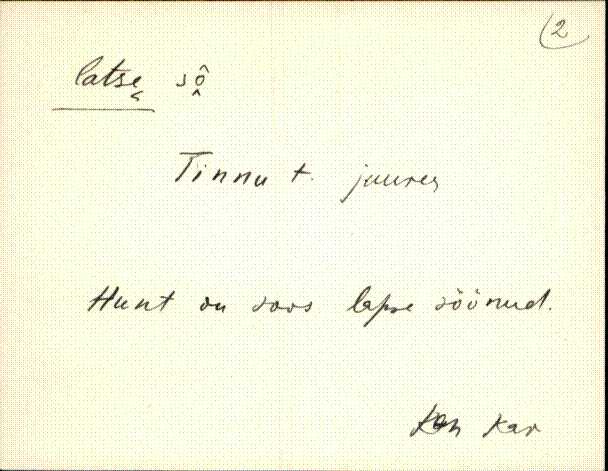 2
latse̬ sô̭
Tinnu t. juures
Hunt on soos lapse söönud.
Kan Kar